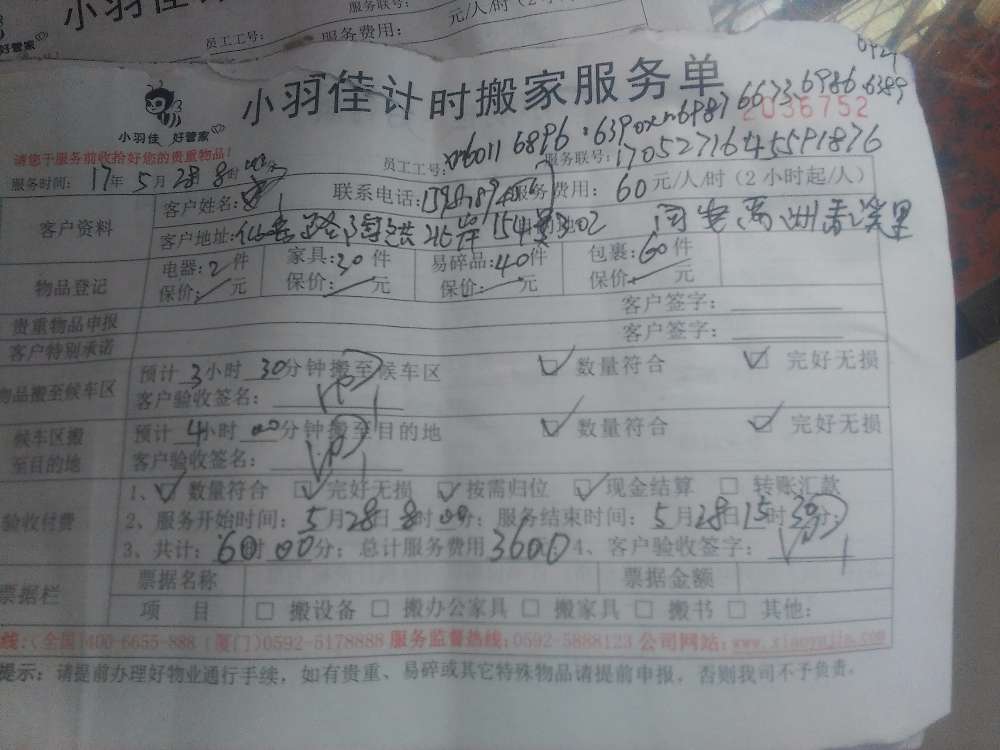 小羽佳
服务联号:
元/人/时(2小
好管家
员工工号:
服务费用:
小羽佳计时搬家服务单
小羽佳 好管家
2036752
请您于服务前收拾好您的贵重物品!
员工工号:
服务联号:
服务时间: 17年 5月 28 8时
联系电话:
服务费用: 60元/人/时(2小时起/人)
客户资料
客户姓名:
客户地址:
物品登记
电器:2件 家具:30件 易碎品:40件 包裹:60件
保价: 元 保价: 元 保价: 元 保价: 元
贵重物品申报 客户签字:
客户特别承诺 客户签字:
物品搬至候车区
预计 3小时 30分钟搬至候车区 数量符合 完好无损
客户验收签名:
候车区搬至目的地
预计 4小时 00分钟搬至目的地 数量符合 完好无损
客户验收签名:
验收付费
1、 数量符合 完好无损 按需归位 现金结算 转账汇款
2、服务开始时间: 5月28日8时00分; 服务结束时间: 5月28日15时30分;
3、共计: 60时00分; 总计服务费用3600 4、客户验收签字:
票据栏
票据名称 票据金额
项 目 搬设备 搬办公家具 搬家具 搬书 其他:
线:(全国)400-6655-888 (厦门)0592-5178888 服务监督热线:0592-5888123 公司网站:www.xiaoyujia.com
提示: 请提前办理好物业通行手续,如有贵重、易碎或其它特殊物品请提前申报,否则我司不予负责。